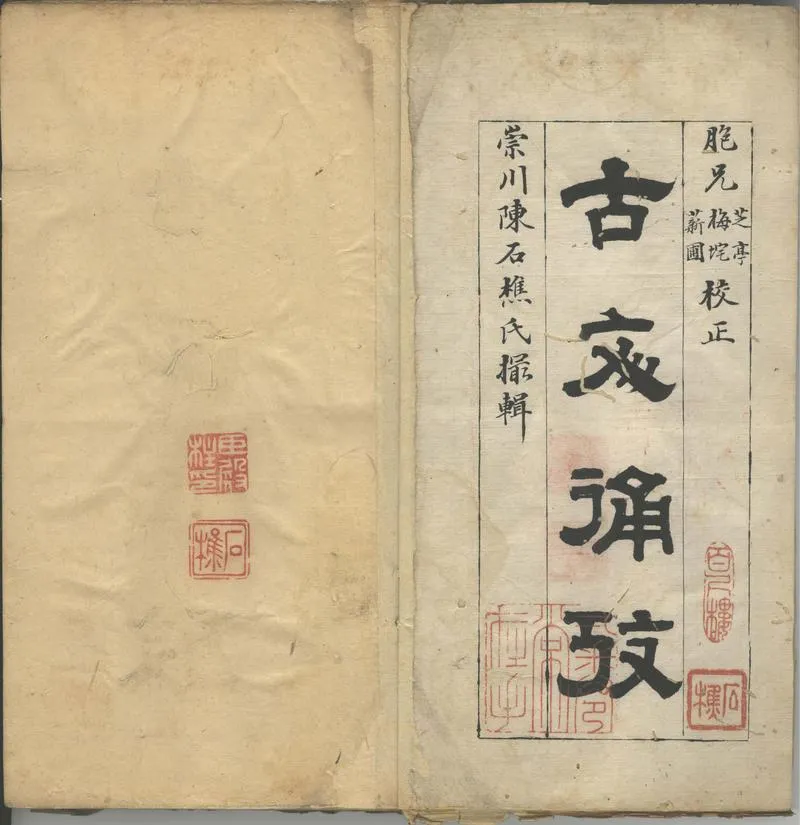 胞兄
芝亭
梅垞
薪圃
校正
古 通攷
崇川陳石樵氏撮輯
百尺樓
石樵
石樵